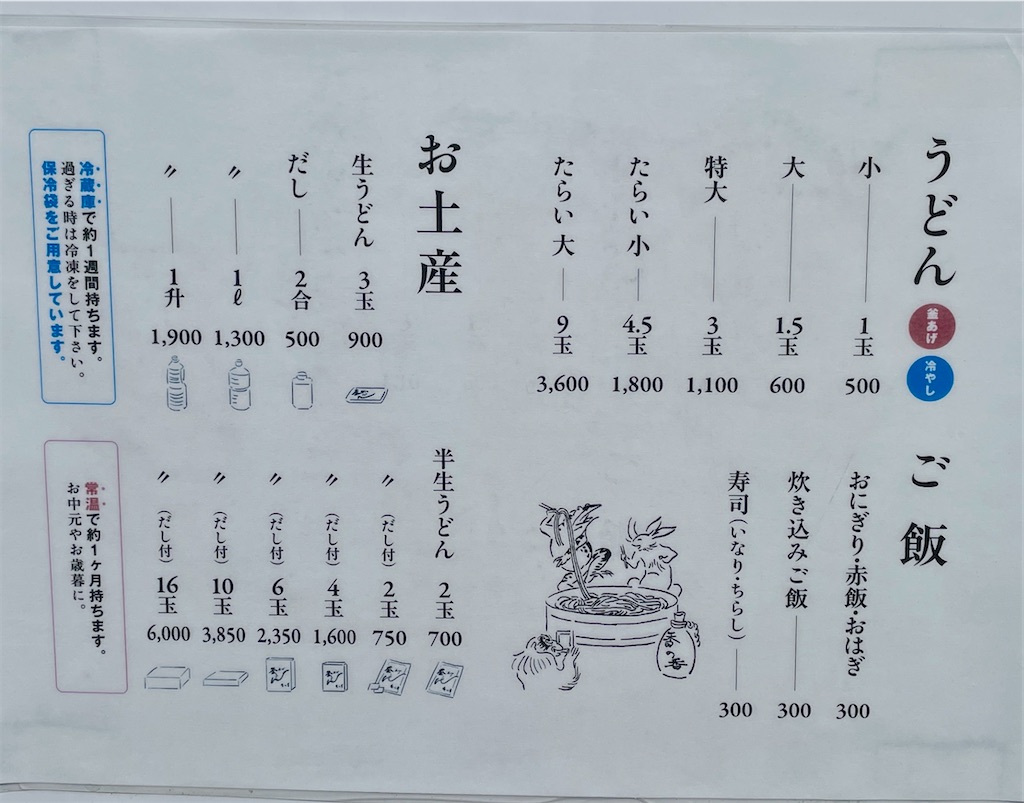 うどん 釜あげ 冷やし
小 1玉 500
大 1.5玉 600
特大 3玉 1,100
たらい 小 4.5玉 1,800
たらい 大 9玉 3,600
ご飯
おにぎり・赤飯・おはぎ 300
炊き込みご飯 300
寿司(いなり・ちらし) 300
お土産
生うどん 3玉 900
だし 2合 500
〃 1ℓ 1,300
〃 1升 1,900
冷蔵庫で約1週間持ちます。
過ぎる時は冷凍をして下さい。
保冷袋をご用意しています。
半生うどん 2玉 700
〃 (だし付) 2玉 750
〃 (だし付) 4玉 1,600
〃 (だし付) 6玉 2,350
〃 (だし付) 10玉 3,850
〃 (だし付) 16玉 6,000
常温で約1ヶ月持ちます。
お中元やお歳暮に。